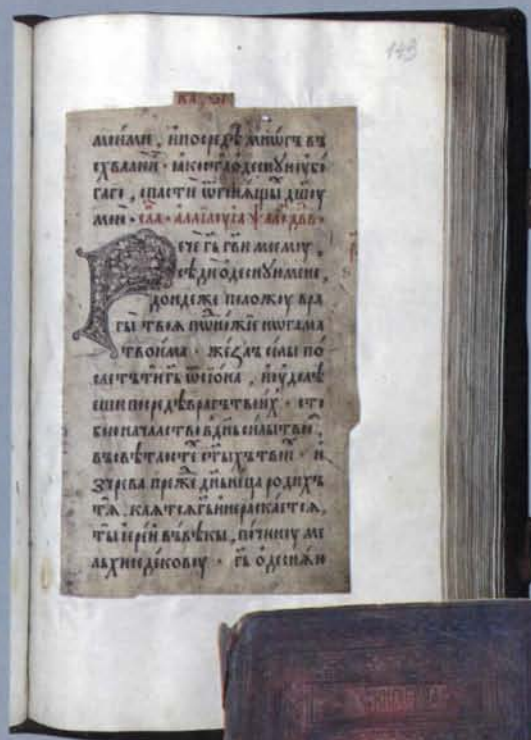 143
моими, и посредѣ мнѡгъ въ
схвалю и҆ · ꙗко ста ѡдесную убо
гаго, спасти ѿ гонѧщы дш꙯у
мою · сла · алилоуіа
Рече гь гви моемоу,
сѣди ѡдесную мене,
дондеже положоу вра
гы твоѧ подножіе ногама
твоима · жезлъ силы по
слетъ ти гь ѿ сіона, и оудолѣ
еши посредѣ врагъ твоихъ · с тобо
ю начатъство в днь силы твоеѧ,
въ свѣтлосте стыхъ твои · и
зъ чрева преже дньница родихъ
тѧ. клѧтсѧ гь и не раскаетсѧ,
ты іерей въ вѣкы, по чиноу ме
лхиседековоу · гь ѡдесную